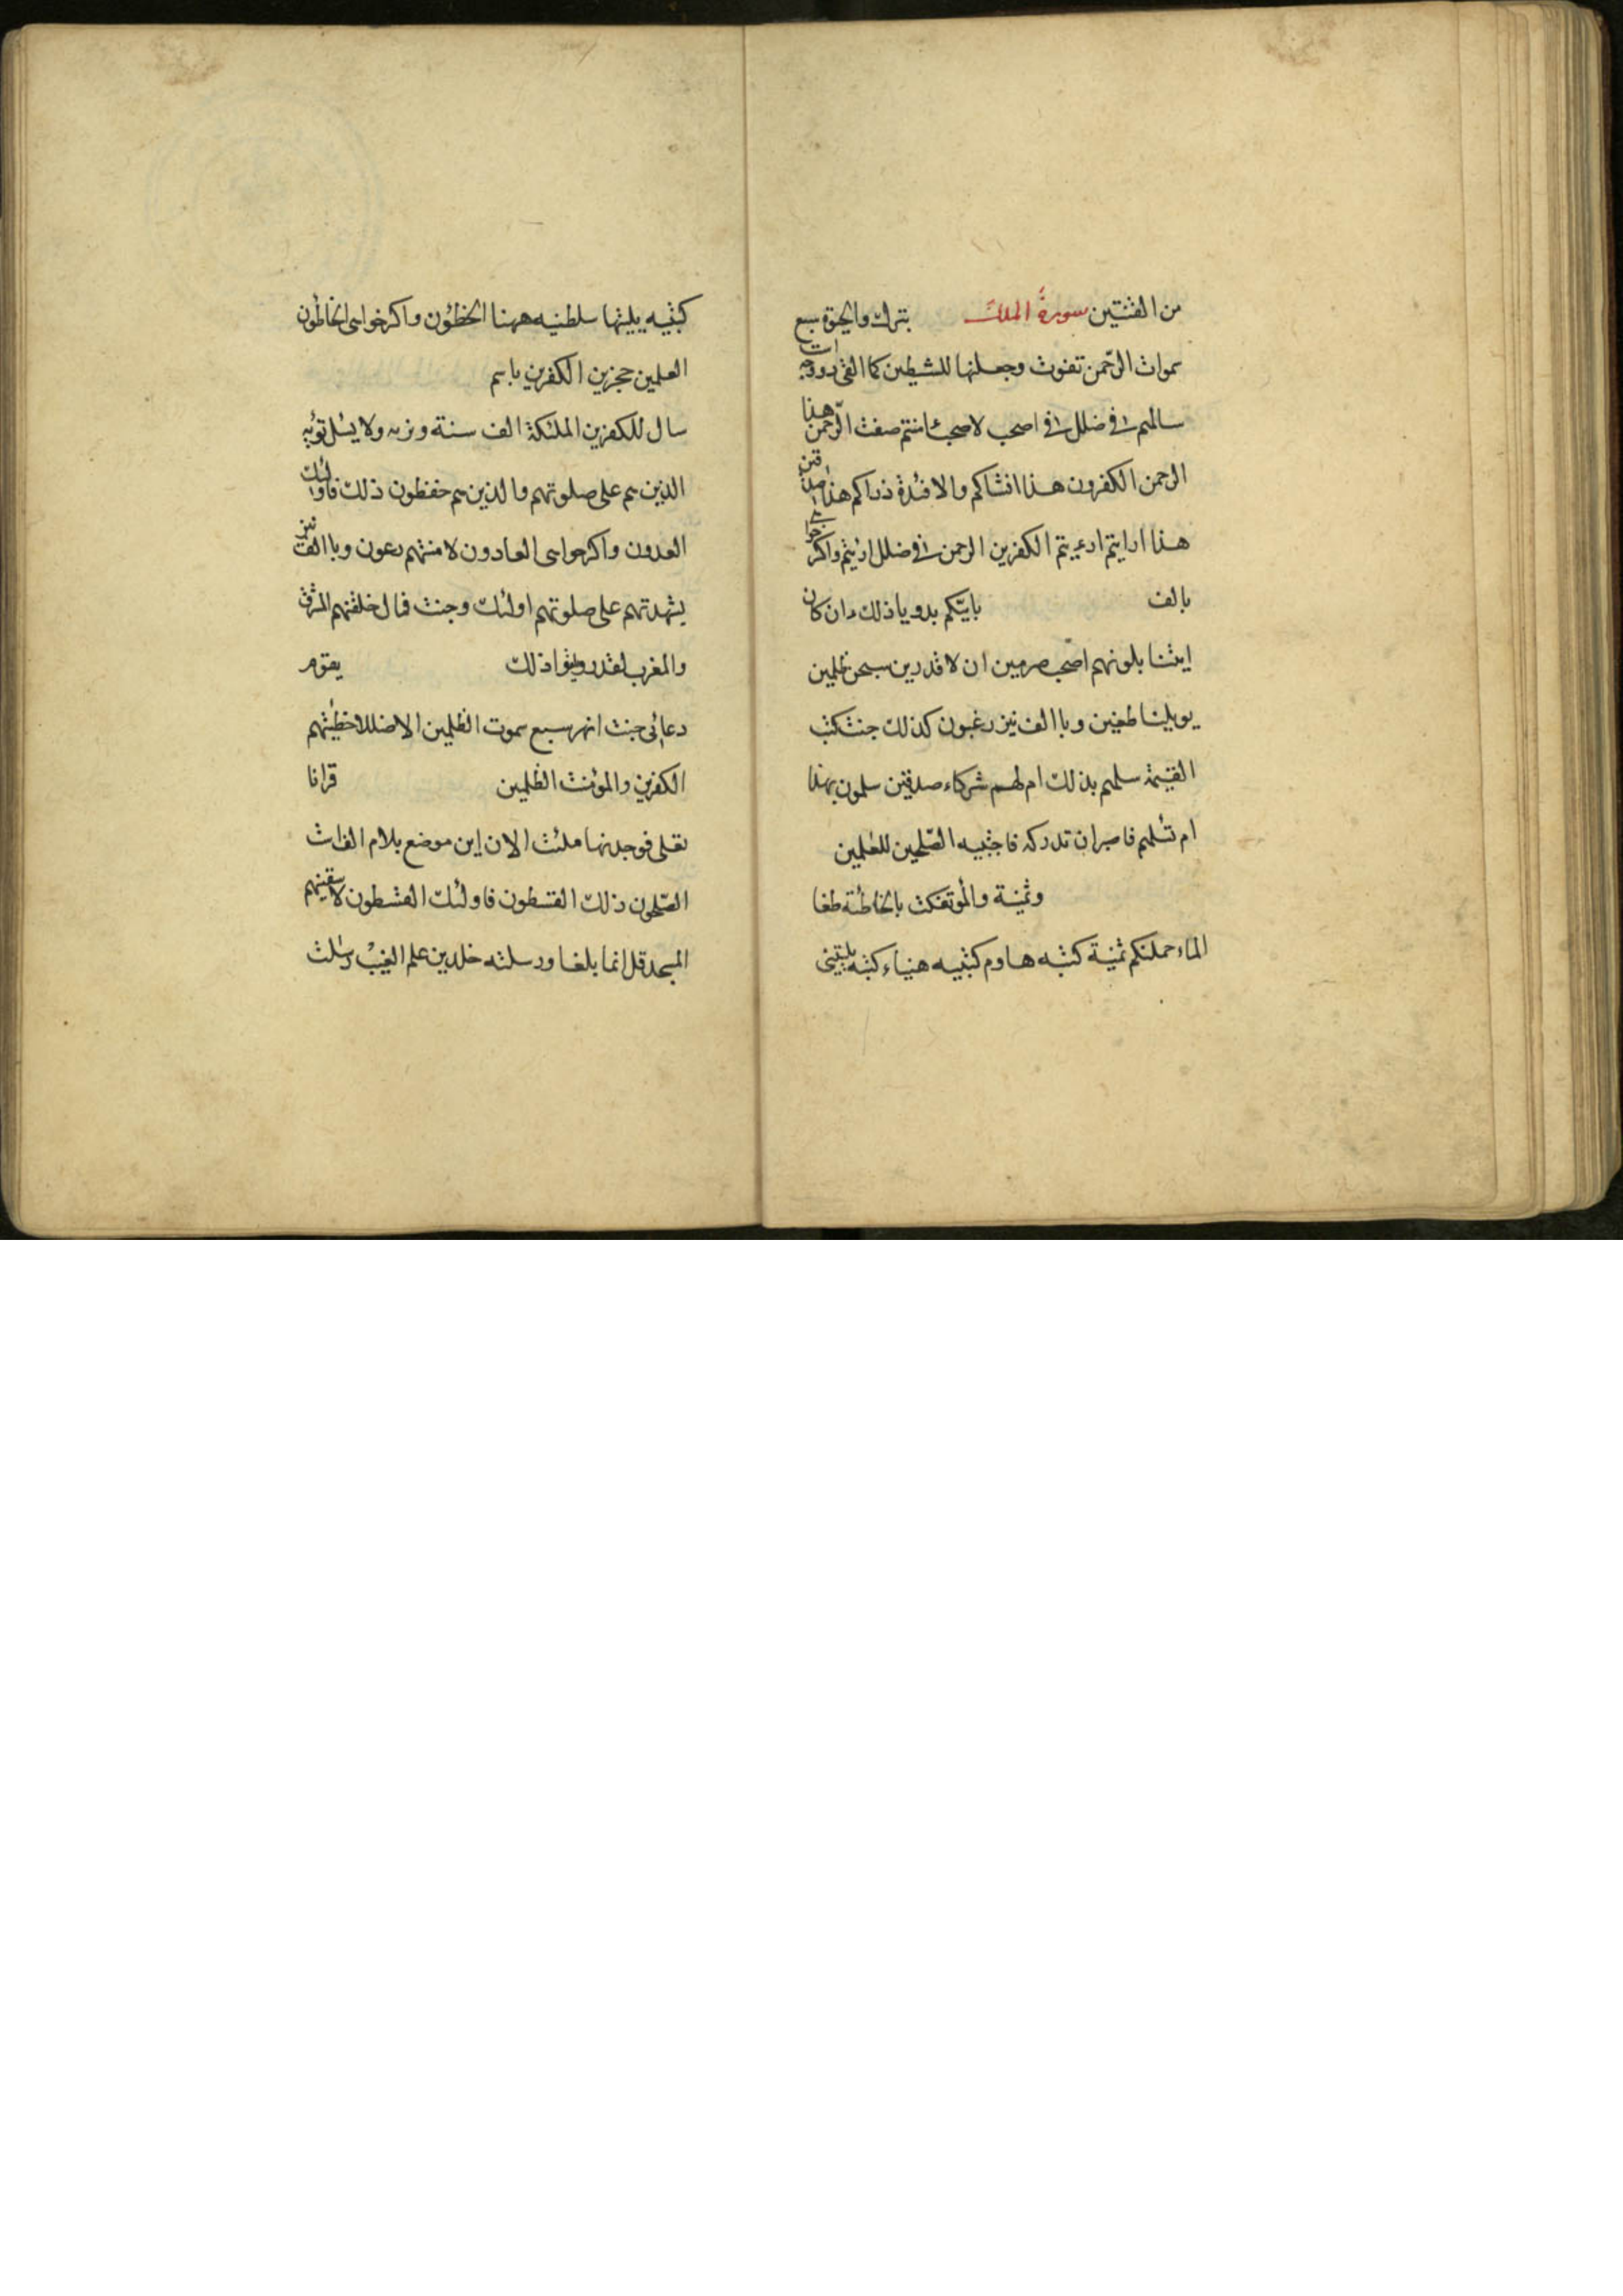 من القنتين سورة الملك بترك والحيوة سبع
سموات الرحمن تفوت وجعلنها للشيطين كلما القى
سالهم في ضلل في اصحب لاصحب امنتم صفت الرحمن هذا
الرحمن الكفرون هذا انشاكم والافئدة ذراكم هذا صدقين
هذا ارايتم اريتم الكفرين الرحمن في ضلل اريتم واكر
بالف باييكم بدو يا ذلك ان كان
ايتنا بلونهم اصحب صرمين ان لا قدرين سبحن ظلمين
يويلنا طغين وبا الف نيز رغبون كذلك جنت كتب
القيمة سلهم بذلك ام لهم شركاء صدقين سلمون بهذا
ام تسلهم فاصبر ان تدركه فاجتبيه الصلحين للعلمين
وثمنية والمؤتفكت بالخاطئة طغا
الماء حملنكم ثمنية كتبه هاوم كتبيه هنيا كتبه يليتنى
كتبيه يليتها سلطنيه ههنا الخطؤن واكر خواهى الخاطئون
العلمين حجزين الكفرين باسم
سال للكفرين الملئكة الف سنة ونريه ولا يسل
الذين هم على صلوتهم والذين هم حفظون ذلك فاولئك
العدون واكر خواهى العادون لامنتهم رعون وبا الف نيز
بشهدتهم على صلوتهم اولئك وجنت فمال خلقنهم المشرق
والمغرب لقدرون ذلك يقوم
دعائى جنت انهر سبع سموت الظلمين الا ضللا خطيئتهم
الكفرين والمؤمنت الظلمين قرانا
تعلى فوجدنها ملئت الان اين موضع بلام الف است
الصلحون ذلك القسطون فاولئك القسطون لاسقينهم
المسجد قل انما بلغا ورسلته خلدين علم الغيب رسلت